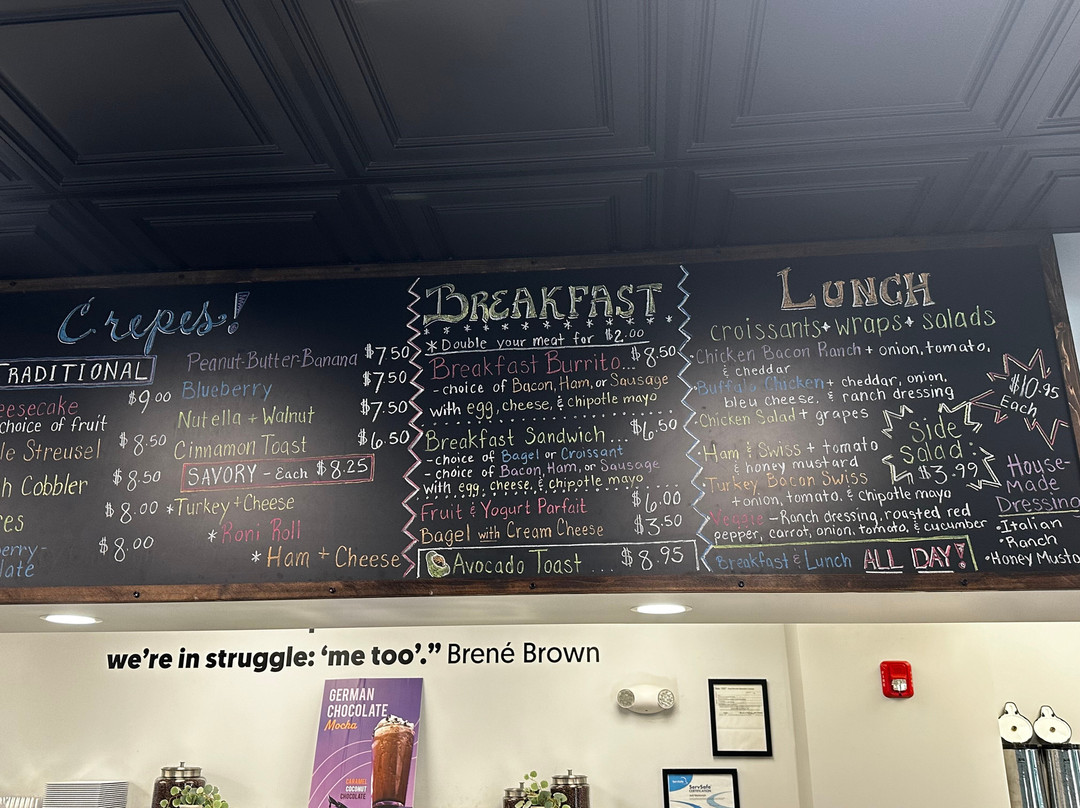 Crepes!
TRADITIONAL
eesecake $9.00
choice of fruit
le Streusel $8.50
h Cobbler $8.50
res $8.00
berry-
late $8.00
Peanut-Butter-Banana $7.50
Blueberry $7.50
Nutella + Walnut $7.50
Cinnamon Toast $6.50
SAVORY - Each $8.25
*Turkey + Cheese
*Roni Roll
*Ham + Cheese
BREAKFAST
*Double your meat for $2.00
Breakfast Burrito... $8.50
- choice of Bacon, Ham, or Sausage
with egg, cheese, & chipotle mayo
Breakfast Sandwich... $6.50
- choice of Bagel or Croissant
- choice of Bacon, Ham, or Sausage
with egg, cheese, & chipotle mayo
Fruit & Yogurt Parfait $6.00
Bagel with Cream Cheese $3.50
Avocado Toast ... $8.95
LUNCH
croissants + wraps + salads
Chicken Bacon Ranch + onion, tomato,
& cheddar
Buffalo Chicken + cheddar, onion,
bleu cheese, & ranch dressing
Chicken Salad + grapes
Ham & Swiss + tomato
& honey mustard
Turkey Bacon Swiss
+ onion, tomato, & chipotle mayo
Veggie - Ranch dressing, roasted red
pepper, carrot, onion, tomato, & cucumber
Breakfast & Lunch ALL DAY!
$10.95
Each
Side
Salad
$3.99
House-
Made
Dressing
•Italian
•Ranch
•Honey Musta
we're in struggle: 'me too'." Brené Brown
GERMAN
CHOCOLATE
Mocha
CARAMEL
COCONUT
CHOCOLATE
ServSafe
CERTIFICATION